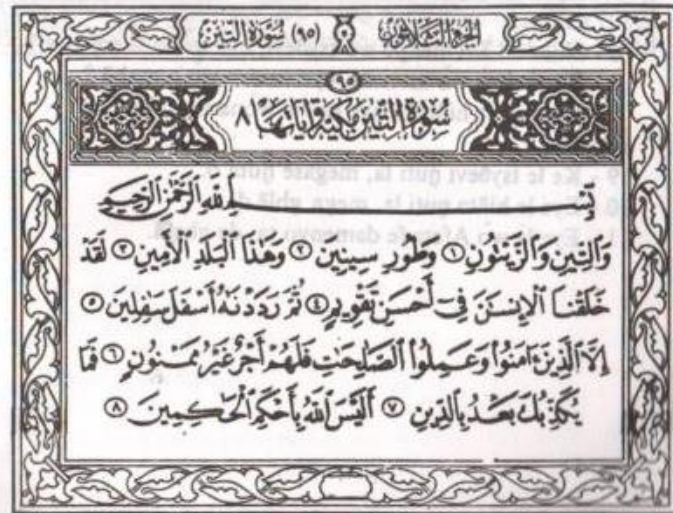 الجزء الثلاثون (٩٥) سورة التين
٩٥
سورة التين مكية وآياتها ٨
بِسْمِ اللَّهِ الرَّحْمَٰنِ الرَّحِيمِ
وَالتِّينِ وَالزَّيْتُونِ ١ وَطُورِ سِينِينَ ٢ وَهَٰذَا الْبَلَدِ الْأَمِينِ ٣ لَقَدْ
خَلَقْنَا الْإِنسَٰنَ فِي أَحْسَنِ تَقْوِيمٍ ٤ ثُمَّ رَدَدْنَٰهُ أَسْفَلَ سَٰفِلِينَ ٥
إِلَّا الَّذِينَ ءَامَنُوا وَعَمِلُوا الصَّٰلِحَٰتِ فَلَهُمْ أَجْرٌ غَيْرُ مَمْنُونٍ ٦ فَمَا
يُكَذِّبُكَ بَعْدُ بِالدِّينِ ٧ أَلَيْسَ اللَّهُ بِأَحْكَمِ الْحَٰكِمِينَ ٨